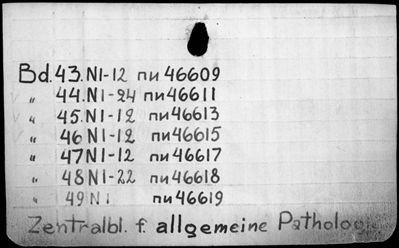 Bd. 43. N1-12 пи 46609
" 44. N1-24 пи 46611
" 45. N1-12 пи 46613
" 46 N1-12 пи 46615
" 47 N1-12 пи 46617
" 48 N1-22 пи 46618
" 49 N1 пи 46619
Zentralbl. f. allgemeine Pathologi